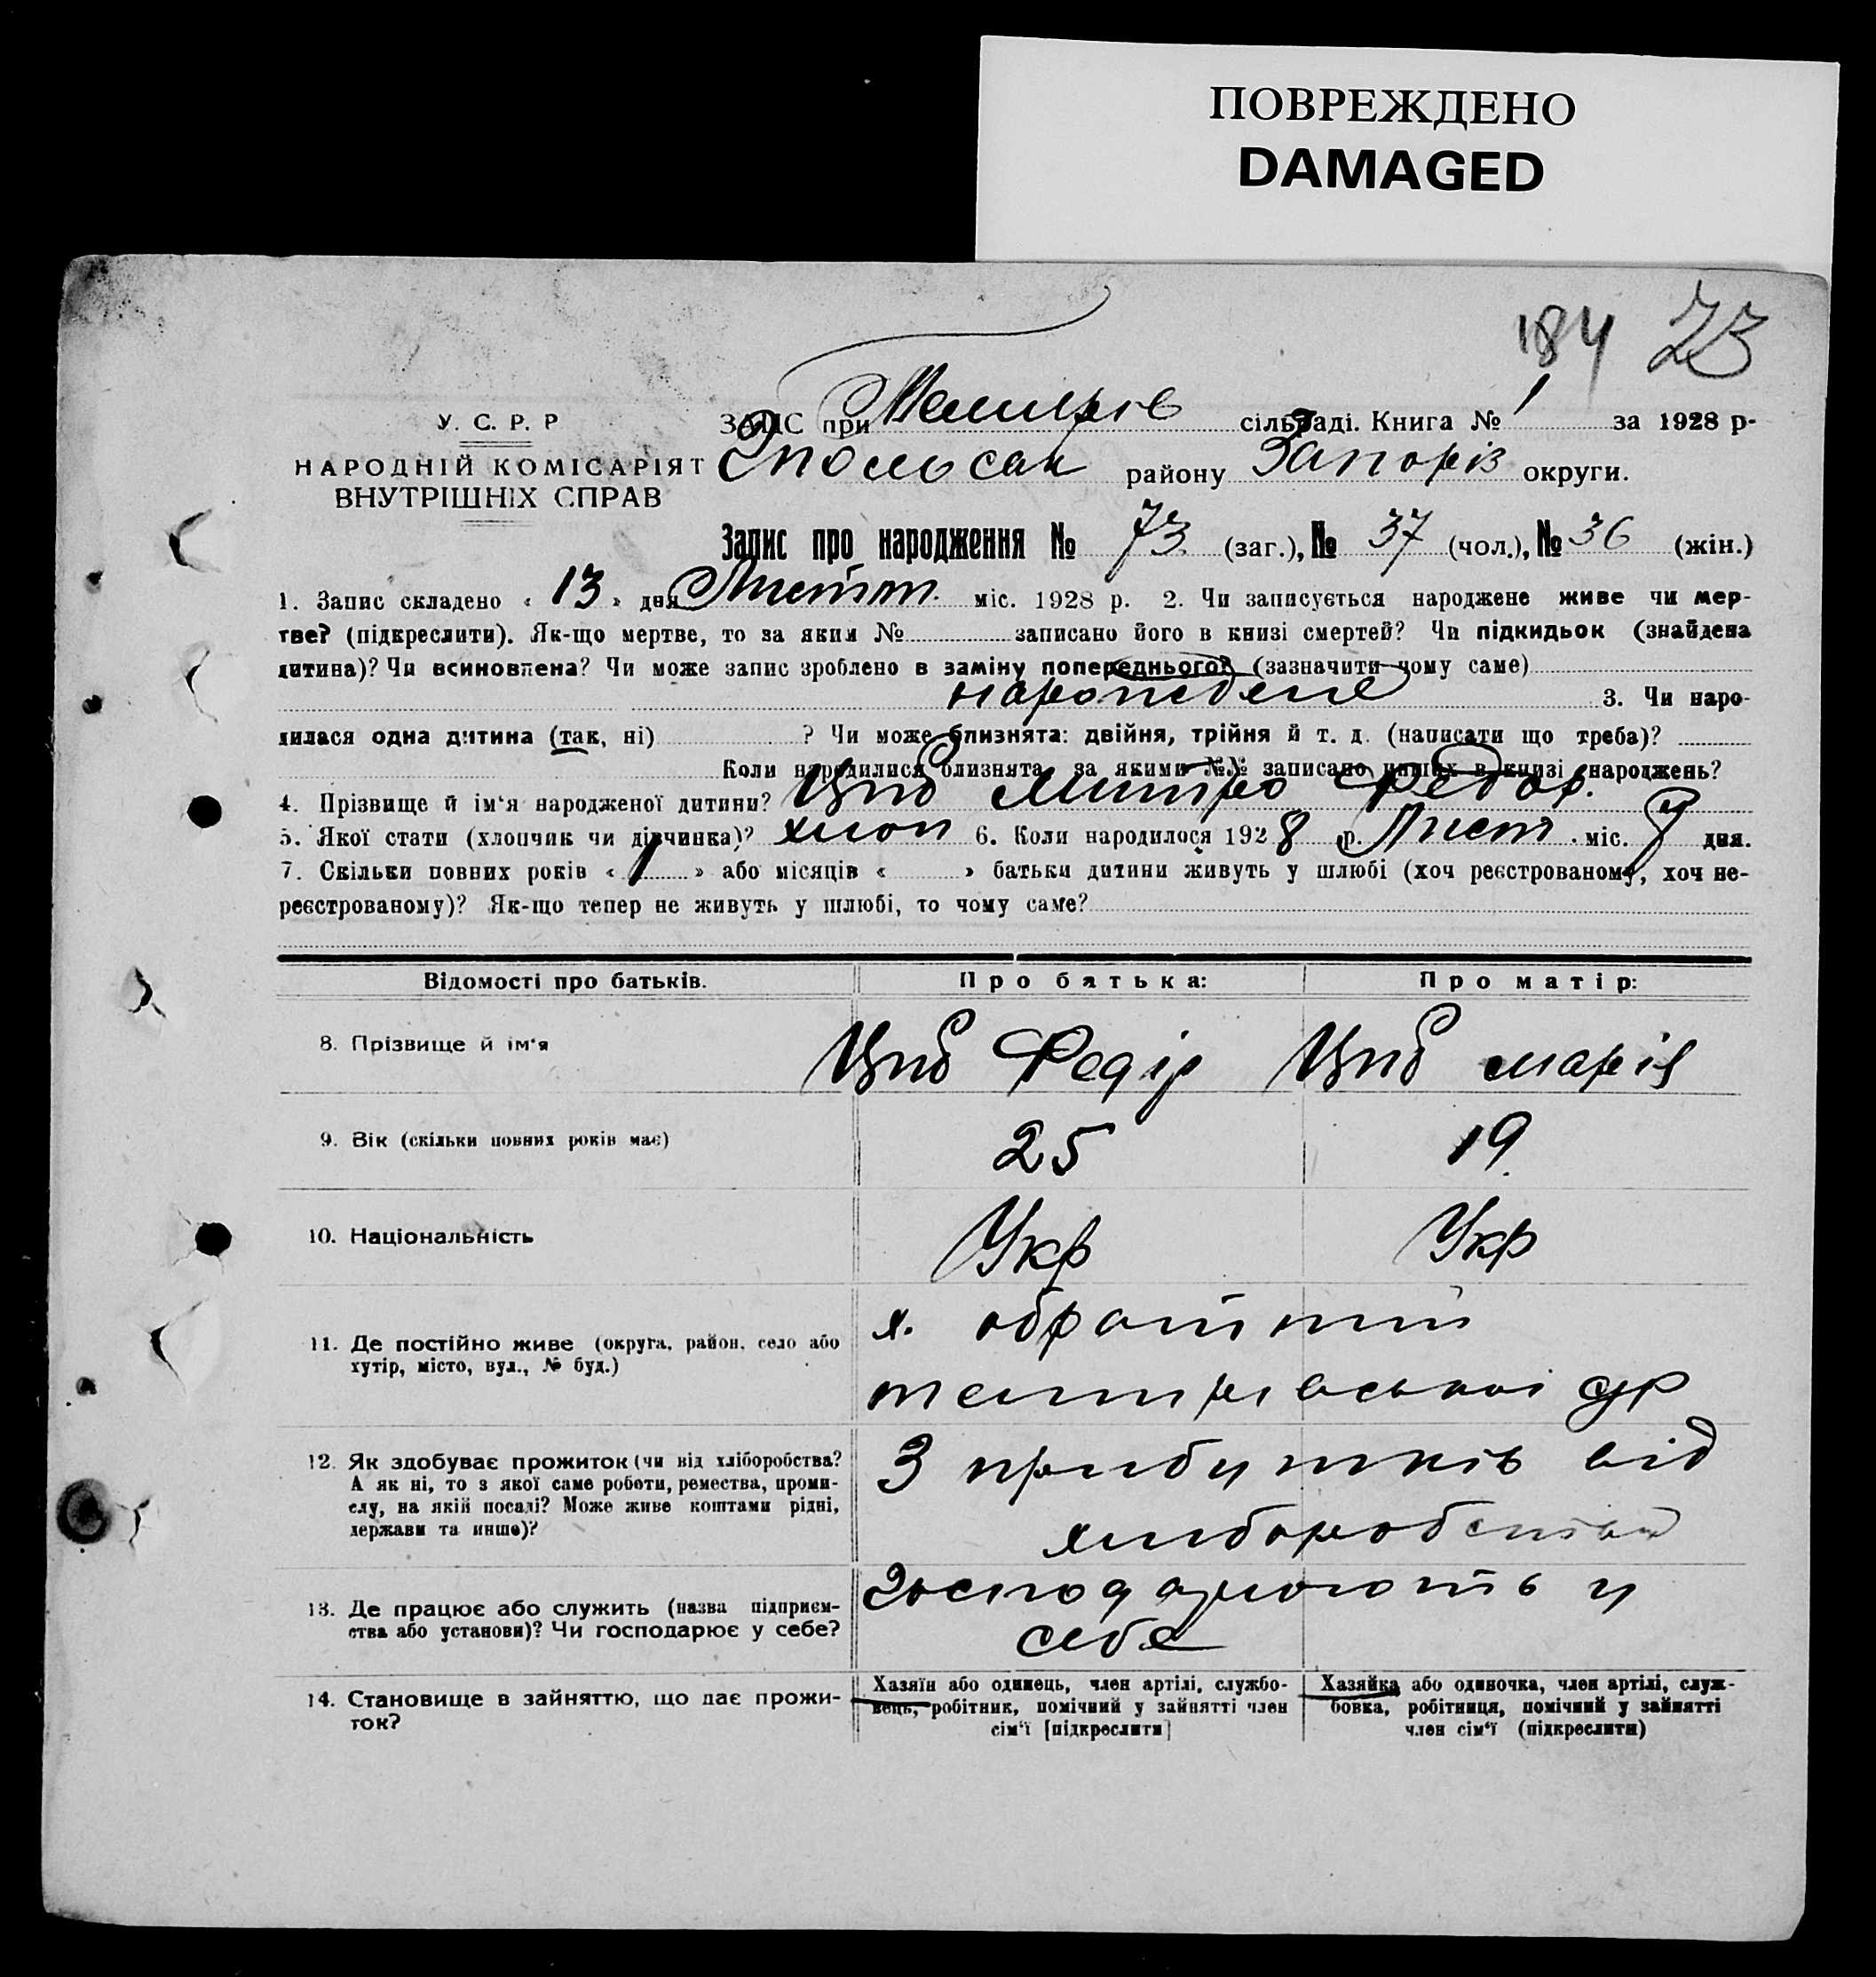 ПОВРЕЖДЕНО
DAMAGED
184 23
У. С. Р. Р
НАРОДНІЙ КОМІСАРІЯТ
ВНУТРІШНІХ СПРАВ
ЗАПИС при сільраді. Книга № 1 за 1928 р-
району Запоріз округи.
Запис про народження № 73 (заг.), № 37 (чол.), № 36 (жін.)
1. Запис складено « 13 » дня Листоп. міс. 1928 р. 2. Чи записується народжене живе чи мер-
тве? (підкреслити). Як-що мертве, то за яким № записано його в книзі смертей? Чи підкидьок (знайдена
дитина)? Чи всиновлена? Чи може запис зроблено в заміну попереднього? (зазначити чому саме)
3. Чи наро-
дилася одна дитина (так, ні) ? Чи може близнята: двійня, трійня й т. д. (написати що треба)?
Коли народилися близнята, за якими №№ записано инших в книзі народжень?
4. Прізвище й ім'я народженої дитини? Циб Митро Федор.
5. Якої стати (хлопчик чи дівчинка)? хлоп 6. Коли народилося 1928 р. Лист. міс. дня.
7. Скільки повних років « 1 » або місяців « » батьки дитини живуть у шлюбі (хоч реєстрованому, хоч не-
реєстрованому)? Як-що тепер не живуть у шлюбі, то чому саме?
Відомості про батьків. Про батька: Про матір:
8. Прізвище й ім'я Циб Федір Циб марія
9. Вік (скільки повних років має) 25 19
10. Національність Укр Укр
11. Де постійно живе (округа, район, село або
хутір, місто, вул., № буд.)
х.
ср
12. Як здобуває прожиток (чи від хліборобства?
А як ні, то з якої саме роботи, ремества, проми-
слу, на якій посаді? Може живе коштами рідні,
держави та инше)?
З прибутків від
хлиборобства
13. Де працює або служить (назва підприєм-
ства або установи)? Чи господарює у себе?
Господарюють у
себе
14. Становище в зайняттю, що дає прожи-
ток?
Хазяїн або одинець, член артілі, службо-
вець, робітник, помічний у зайнятті член
сім'ї [підкреслити]
Хазяйка або одиночка, член артілі, служ-
бовка, робітниця, помічний у зайнятті
член сім'ї (підкреслити)